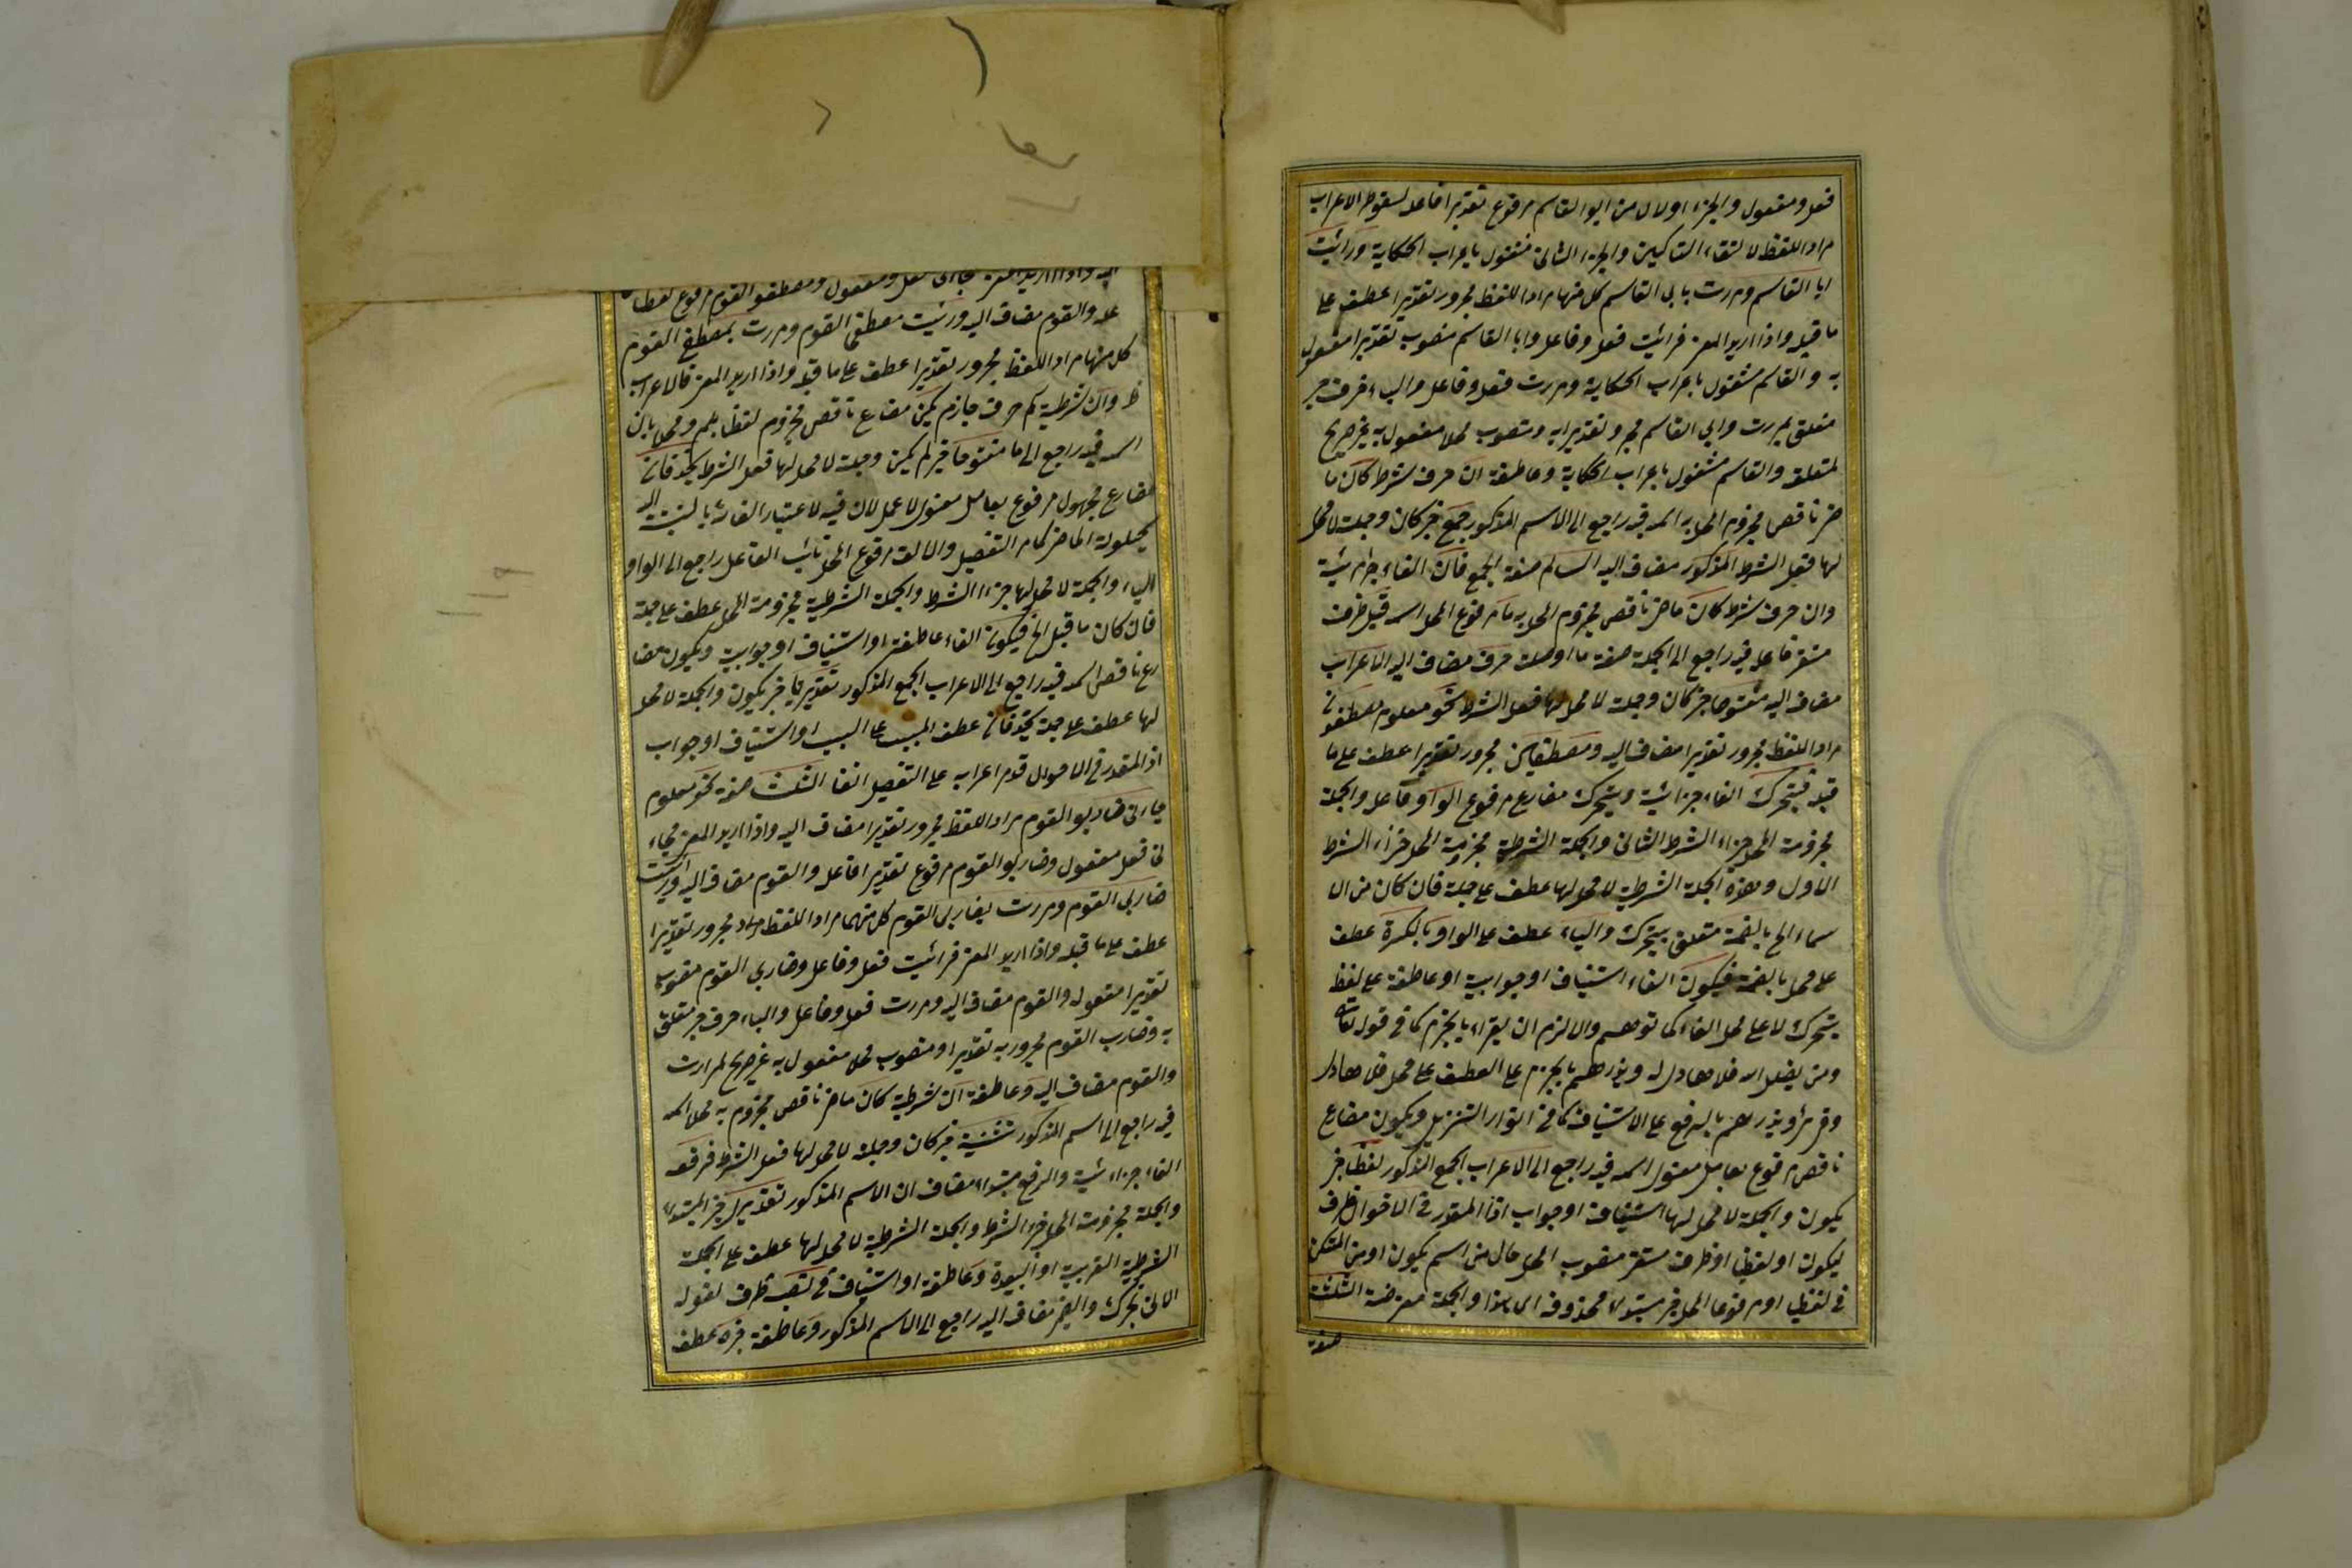 فعل ومفعول والجزء اولال من ابو القاسم مرفوع تقديرا فاعله لسقوط الاعراب
مراد اللفظ لالتقاء الساكنين والجزء الثانى مشغول باعراب الحكاية ورأيت
ابا القاسم ومررت بابى القاسم كل منهما مراد اللفظ مجرور تقديرا عطف على
ما قبله واذا اريد المعنى فرأيت فعل وفاعل وابا القاسم منصوب تقديرا مفعول
به والقاسم مشغول باعراب الحكاية ومررت فعل وفاعل والباء حرف جر
متعلق بمررت وابى القاسم مجرور تقديرا به ومنصوب محلا مفعول به غير صريح
لمتعلقه والقاسم مشغول باعراب الحكاية وعاطفة ان حرف شرط كان ما
ض ناقص مجزوم المحل به اسمه فيه راجع الى الاسم المذكور جمع خبر كان وجملة لا محل
لها فعل الشرط المذكور مضاف اليه السالم صفة الجمع فان الفاء جزائية
وان حرف شرط كان ماض ناقص مجزوم المحل به ما مرفوع المحل اسمه قبل ظرف
مستقر فاعله فيه راجع الى الجملة صفة ما او صلته حرف مضاف اليه الاعراب
مضاف اليه مفتوحا خبر كان وجملة لا محل لها فعل الشرط نحو معلوم مصطفون
مراد اللفظ مجرور تقديرا مضاف اليه ومصطفين مجرور تقديرا عطف على ما
قبله فيتحرك الفاء جزائية ويتحرك مضارع مرفوع الواو فاعل والجملة
مجزومة المحل جزاء الشرط الثانى والجملة الشرطية مجزومة المحل جزاء الشرط
الاول وهذه الجملة الشرطية لا محل لها عطف على جملة فان كان من الا
سماء الخ بالضمة متعلق بيتحرك والياء عطف على الواو بالكسرة عطف
على محل بالضمة فيكون الفاء استيناف او جوابية او عاطفة على لفظ
يتحرك لا على محل الفاء كما توهم والا لزم ان يقراء بالجزم كما فى قوله تعالى
ومن يضلل الله فلا هادى له ويذرهم بالجزم على العطف على محل فلا هادى له
وقرئ ويذرهم بالرفع على الاستيناف كما فى انوار التنزيل ويكون مضارع
ناقص مرفوع بعامل معنوى اسمه فيه راجع الى الاعراب الجمع المذكور لفظيا خبر
يكون والجملة لا محل لها استيناف او جواب اذا المقدر فى الاحوال ظرف
ليكون او لفظيا او ظرف مستقر منصوب المحل حال من اسم يكون او من المستكن
فى لفظيا او مرفوعا المحل خبر مبتداء محذوف اى هذا والجملة معترضة الثلث
صفة
اليه واذا اريد المعنى جاءنى فعل ومفعول ومصطفو القوم مرفوع لفظا
عل والقوم مضاف اليه ورئيت مصطفى القوم ومررت بمصطفى القوم
كل منهما مراد اللفظ مجرور تقديرا عطف على ما قبله واذا اريد المعنى فالاعراب
ظ وان شرطية لم حرف جازم يكن مضارع ناقص مجزوم لفظا بلم ومحلا بان
اسمه فيه راجع الى ما مفتوحا خبر لم يكن وجملة لا محل لها فعل الشرط يحذفان
مضارع مجهول مرفوع بعامل معنوى لا عمل لان فيه لاعتبار الفاء بالنسبة اليه
لحيلولة الماضى كما مر التفصيل والالف مرفوع المحل نائب الفاعل راجع الى الواو
الياء والجملة لا محل لها جزاء الشرط والجملة الشرطية مجزومة المحل عطف على جملة
فان كان ما قبل الخ فيكون الفاء عاطفة او استيناف او جوابية ويكون مضا
رع ناقص اسمه فيه راجع الى الاعراب الجمع المذكور تقديريا خبر يكون والجملة لا محل
لها عطف على جملة يحذفان عطف المسبب على السبب او استيناف او جواب
اذا المقدر فى الاحوال قدم اعرابه على التفصيل انفا الثلث صفة نحو معلوم
جاءنى ضاربو القوم مراد اللفظ مجرور تقديرا مضاف اليه واذا اريد المعنى فجاء
نى فعل مفعول وضاربو القوم مرفوع تقديرا فاعل والقوم مضاف اليه ورأيت
ضاربى القوم ومررت بضاربى القوم كل منهما مراد اللفظ مجرور تقديرا
عطف على ما قبله واذا اريد المعنى فرأيت فعل وفاعل وضاربى القوم منصوب
تقديرا مفعوله والقوم مضاف اليه ومررت فعل وفاعل والباء حرف جر متعلق
به وضارب القوم مجرور به تقديرا ومنصوب محلا مفعول به غير صريح لمررت
والقوم مضاف اليه وعاطفة ان شرطية كان ماض ناقص مجزوم به محلا اسمه
فيه راجع الى اسم المذكور تثنية خبر كان وجملة لا محل لها فعل الشرط فرفعه
الفاء جزائية والرفع مبتداء مضاف الى الاسم المذكور تقديرى خبر المبتداء
والجملة مجزومة المحل جزاء الشرط والجملة الشرطية لا محل لها عطف على الجملة
الشرطية القريبة او البعيدة وعاطفة او استيناف فى نصبه ظرف لقوله
الاتى بحرك والضمير مضاف اليه راجع الى الاسم المذكور وعاطفة جره عطف